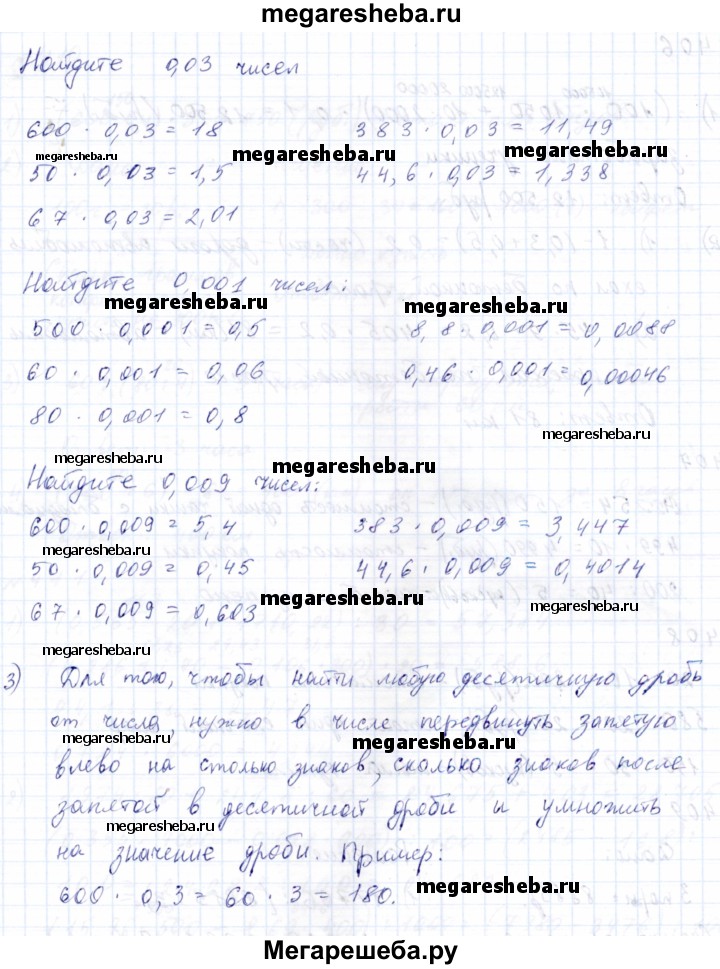 megaresheba.ru
Найдите 0,03 чисел
600 · 0,03 = 18 383 · 0,03 = 11,49
megaresheba.ru megaresheba.ru megaresheba.ru
50 · 0,03 = 1,5 44,6 · 0,03 = 1,338
67 · 0,03 = 2,01
Найдите 0,001 чисел:
megaresheba.ru megaresheba.ru
500 · 0,001 = 0,5 8,8 · 0,001 = 0,0088
60 · 0,001 = 0,06 0,46 · 0,001 = 0,00046
80 · 0,001 = 0,8
megaresheba.ru megaresheba.ru
megaresheba.ru
Найдите 0,009 чисел:
600 · 0,009 = 5,4 383 · 0,009 = 3,447
megaresheba.ru megaresheba.ru
50 · 0,009 = 0,45 44,6 · 0,009 = 0,4014
megaresheba.ru megaresheba.ru
67 · 0,009 = 0,603
megaresheba.ru
3) Для того, чтобы найти любую десятичную дробь
от числа, нужно в числе передвинуть запятую
megaresheba.ru megaresheba.ru
влево на столько знаков, сколько знаков после
запятой в десятичной дроби и умножить
megaresheba.ru
на значение дроби. Пример:
600 · 0,3 = 60 · 3 = 180.
megaresheba.ru
Мегарешеба.ру